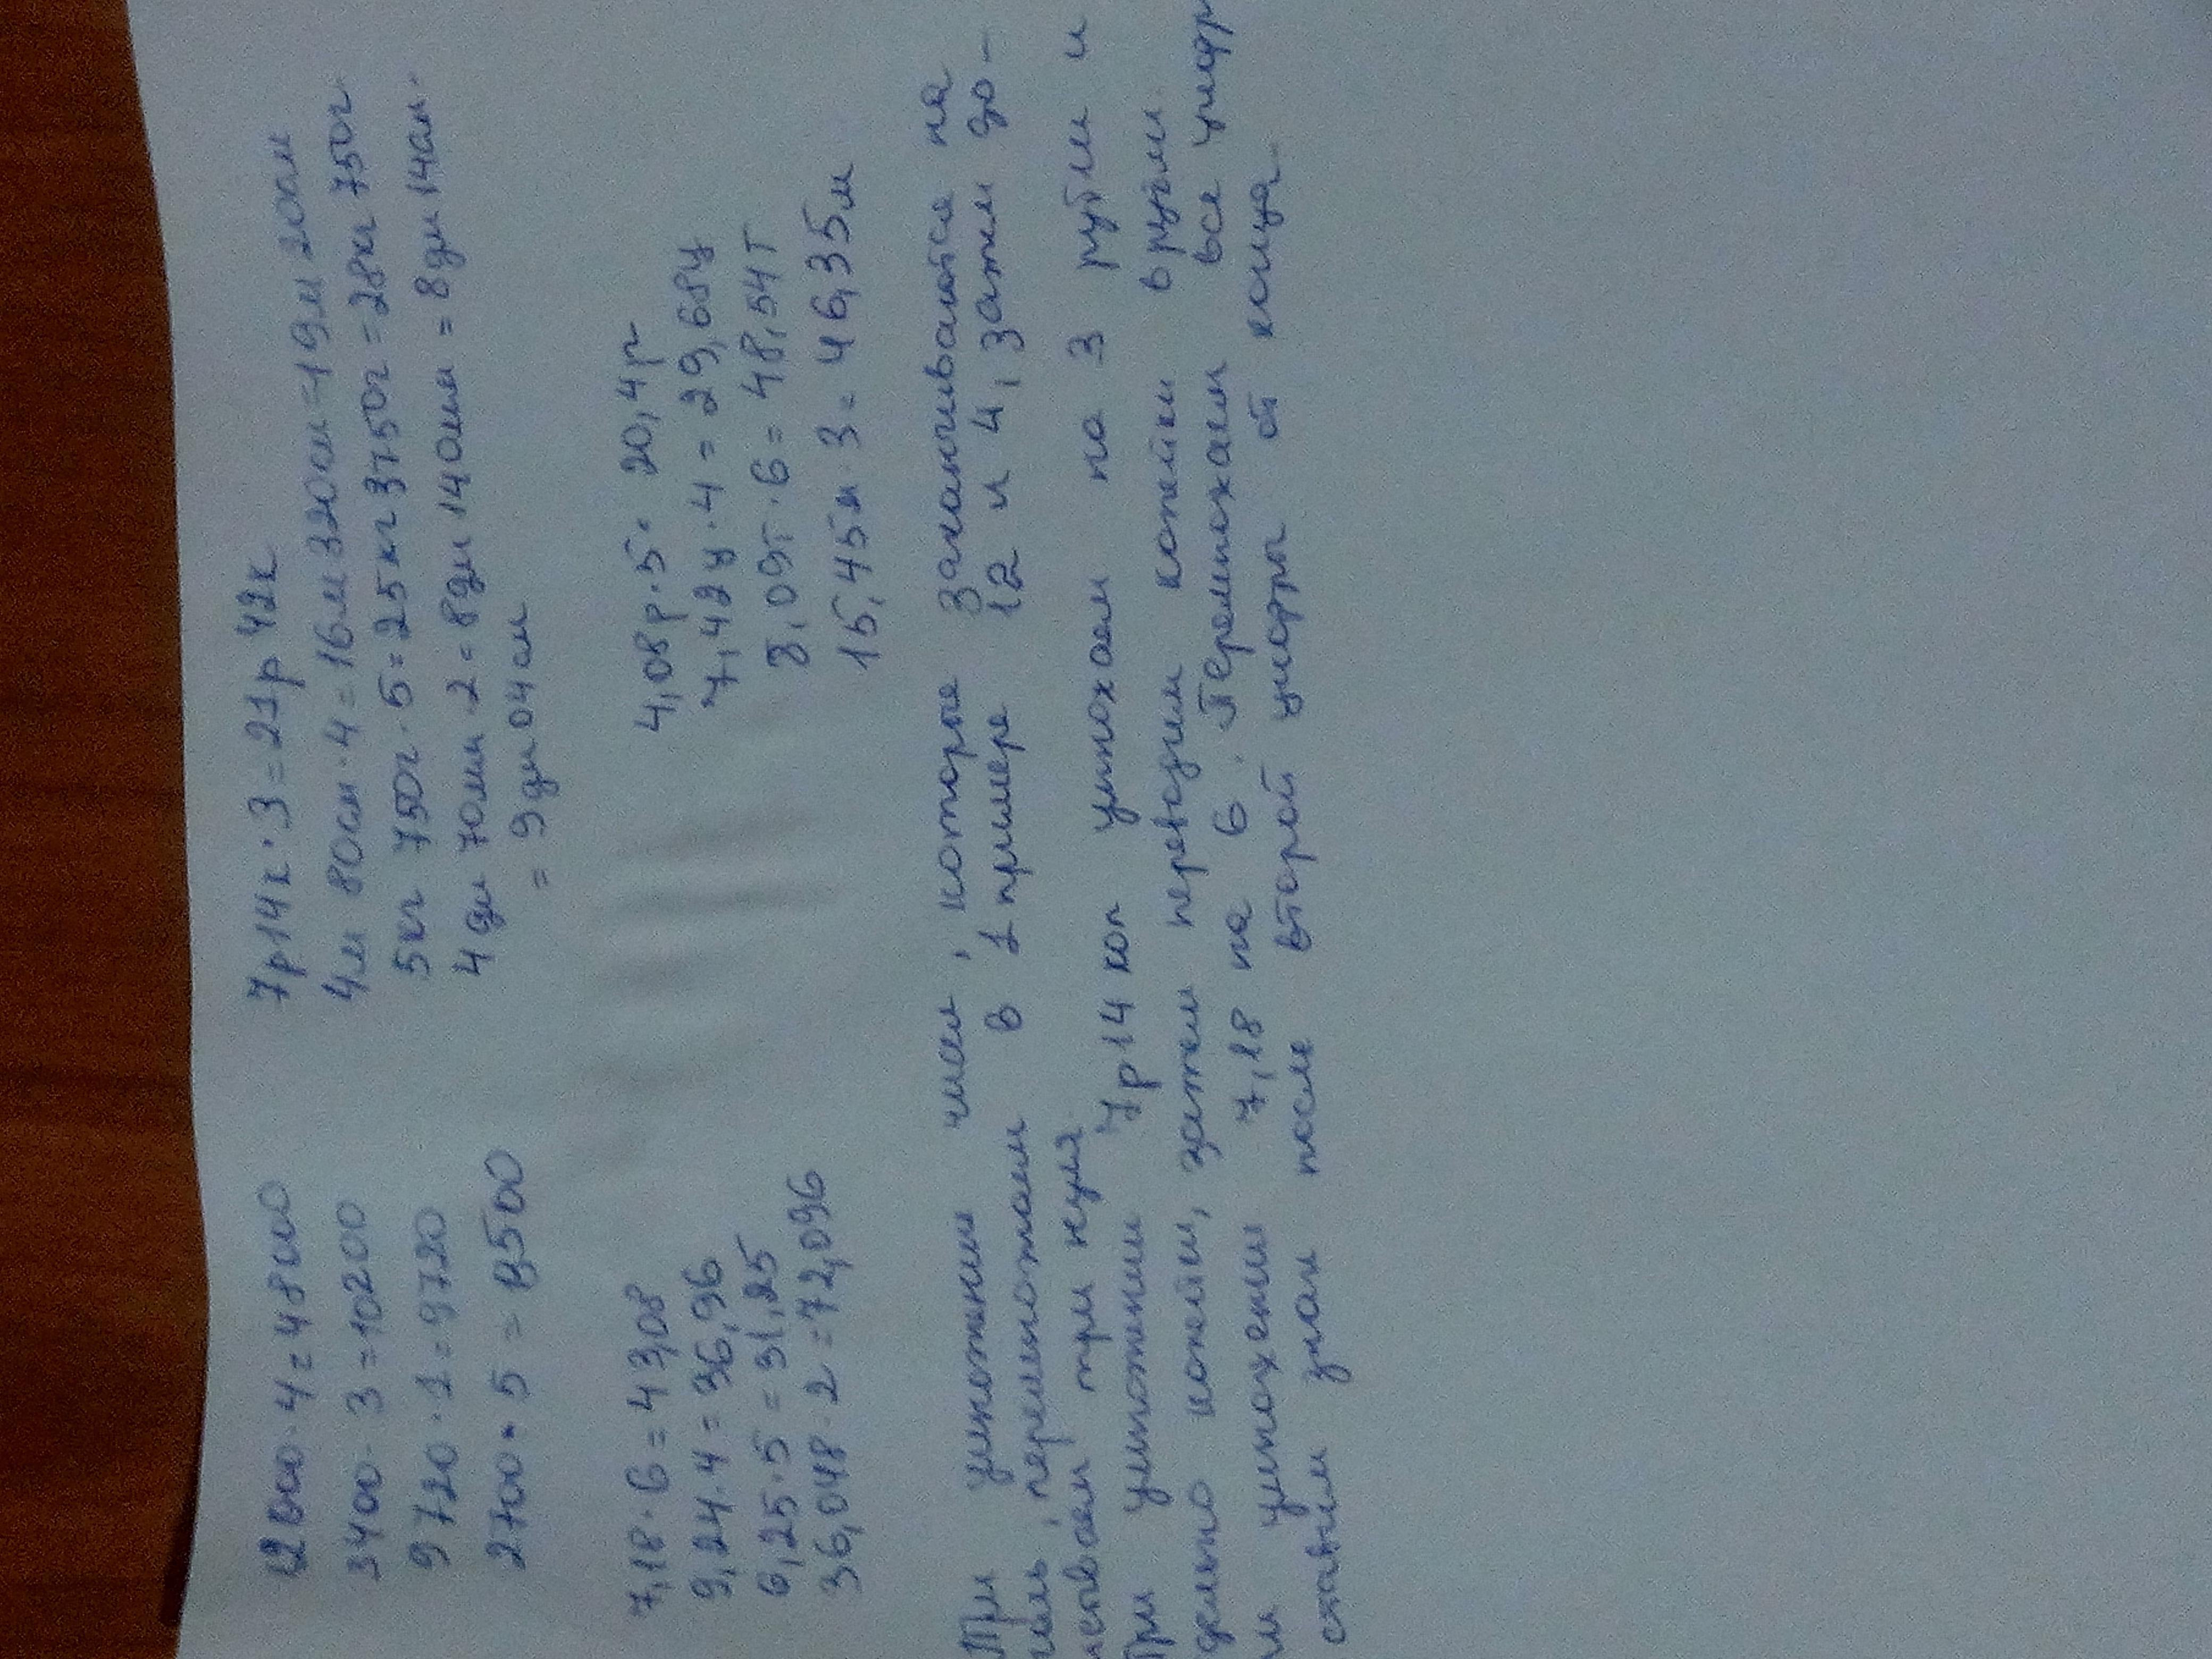 12000·4=48000
3400·3=10200
9720·1=9720
2700·5=8500
7р14к·3=21р 42к
4м 80см·4=16м320см=19м20см
5кг 750г·5=25кг3750г=28кг750г
4дм 70мм·2=8дм140мм=8дм14см.
=9дм04см
7,18·6=43,08
9,24·4=36,96
6,25·5=31,25
36,048·2=72,096
4,08р·5=20,4р
7,42ц·4=29,68ц
8,09т·6=48,54т
15,45м·3=46,35м
При умножении чисел, которые заканчиваются на
перемножаем в 1 примере 12 и 4, затем до-
три нуля
При умножении 7р14коп умножаем на 3 рубли и
копейки, затем переводим копейки в рубли.
умножении 7,18 на 6. Перемножаем все цифры
ставим знак после второй цифры от конца.